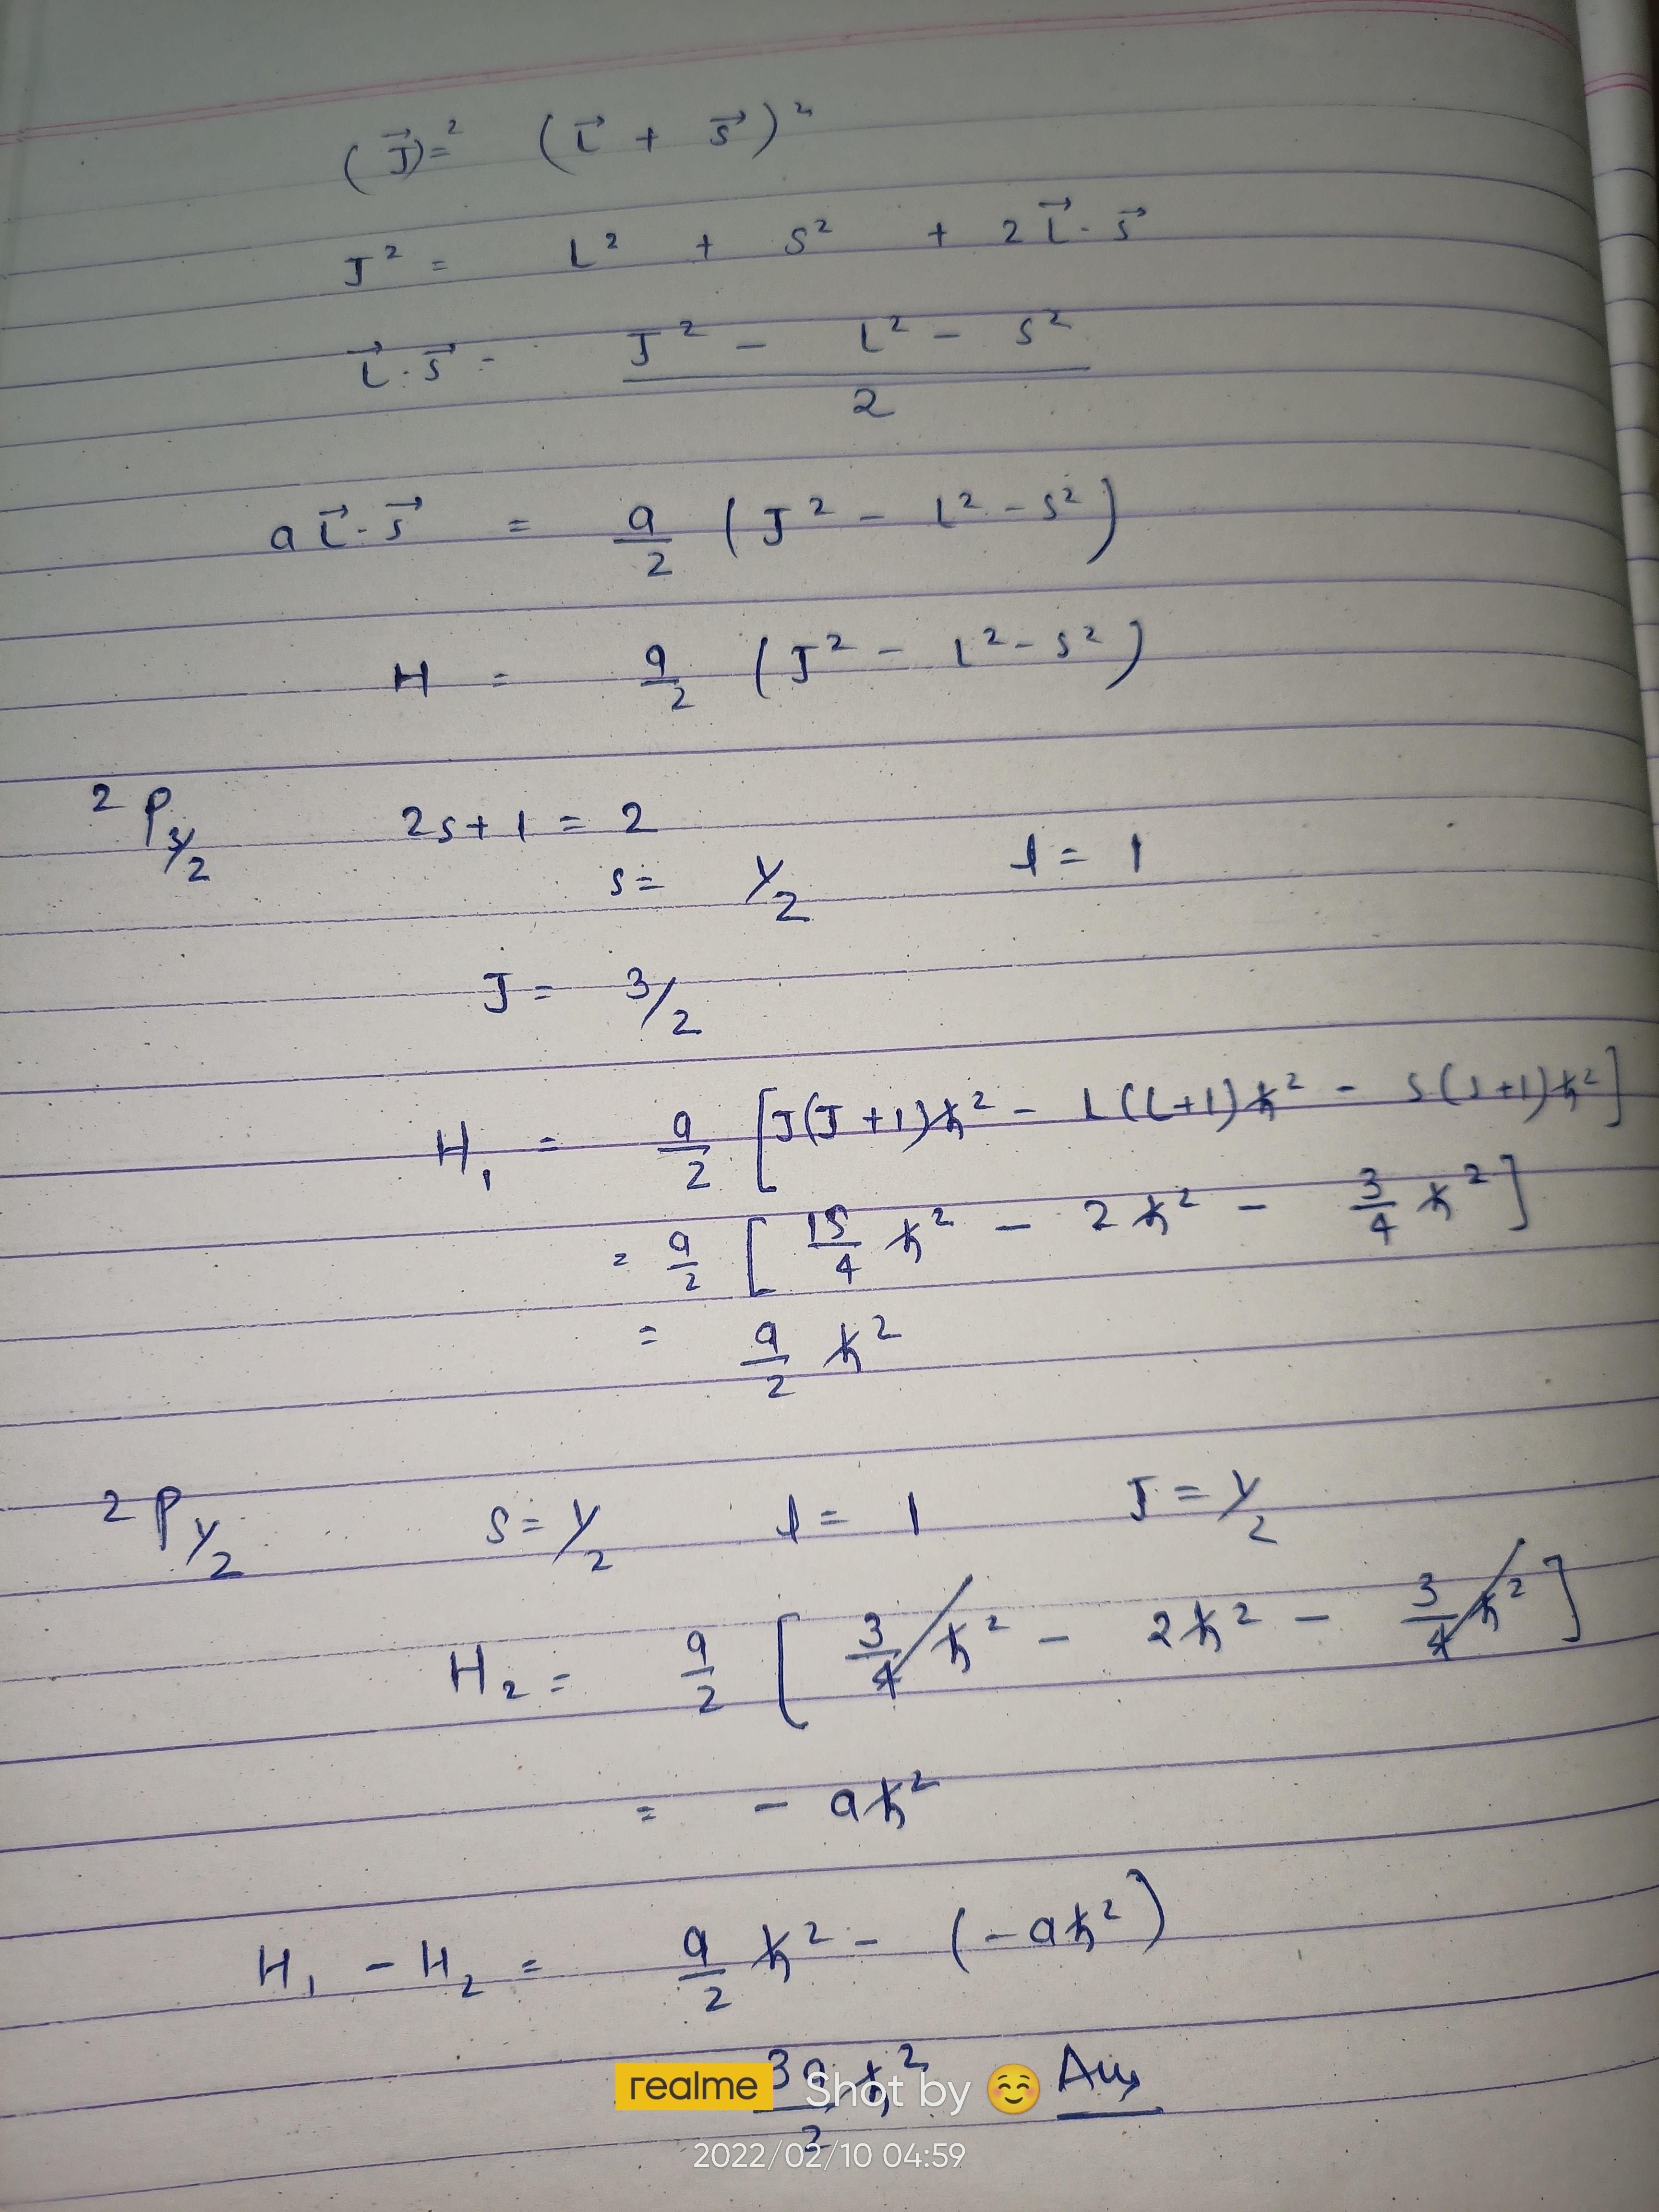 (J⃗)² = (L⃗ + S⃗)²
J² = L² + S² + 2 L⃗ · S⃗
L⃗ · S⃗ = (J² - L² - S²) / 2
a L⃗ · S⃗ = a/2 (J² - L² - S²)
H = a/2 (J² - L² - S²)
²P₃/₂ 2s + 1 = 2
s = 1/2 l = 1
J = 3/2
H₁ = a/2 [J(J+1)ħ² - L(L+1)ħ² - S(S+1)ħ²]
= a/2 [15/4 ħ² - 2ħ² - 3/4 ħ²]
= a/2 ħ²
²P₁/₂ S = 1/2 l = 1 J = 1/2
H₂ = a/2 [3/4 ħ² - 2ħ² - 3/4 ħ²]
= - aħ²
H₁ - H₂ = a/2 ħ² - (-aħ²)
3a/2 ħ² Ans
realme Shot by 😊
2022/02/10 04:59